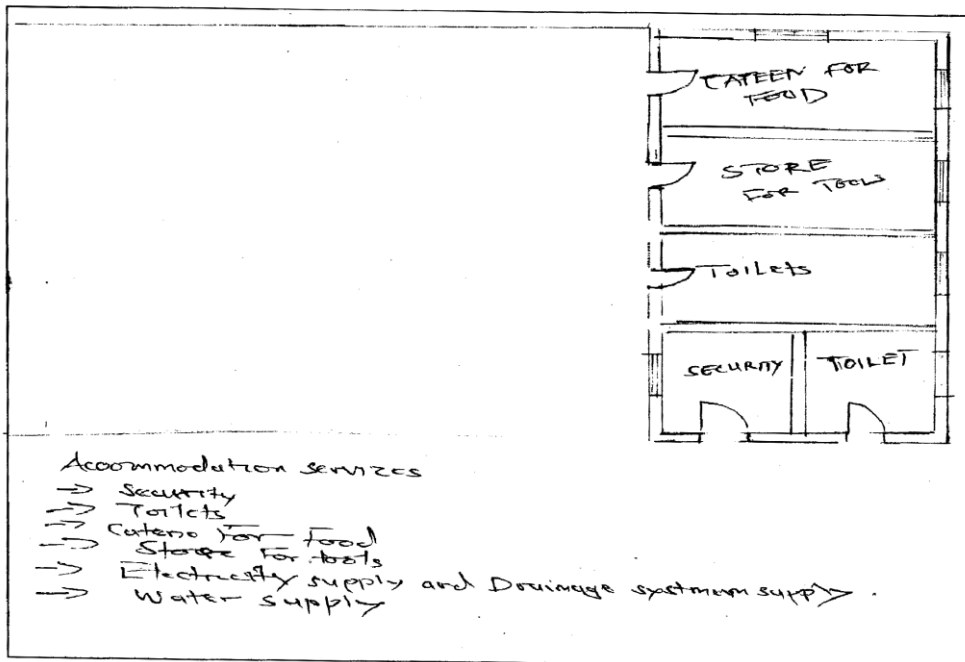 CATEEN FOR
FOOD
STORE
FOR TOOLS
Toilets
SECURITY
TOILET
Accommodation services
→ Security
→ Toilets
→ Cateno For Food
→ Store For tools
→ Electricity supply and Drainage systmem supply.
→ Water supply